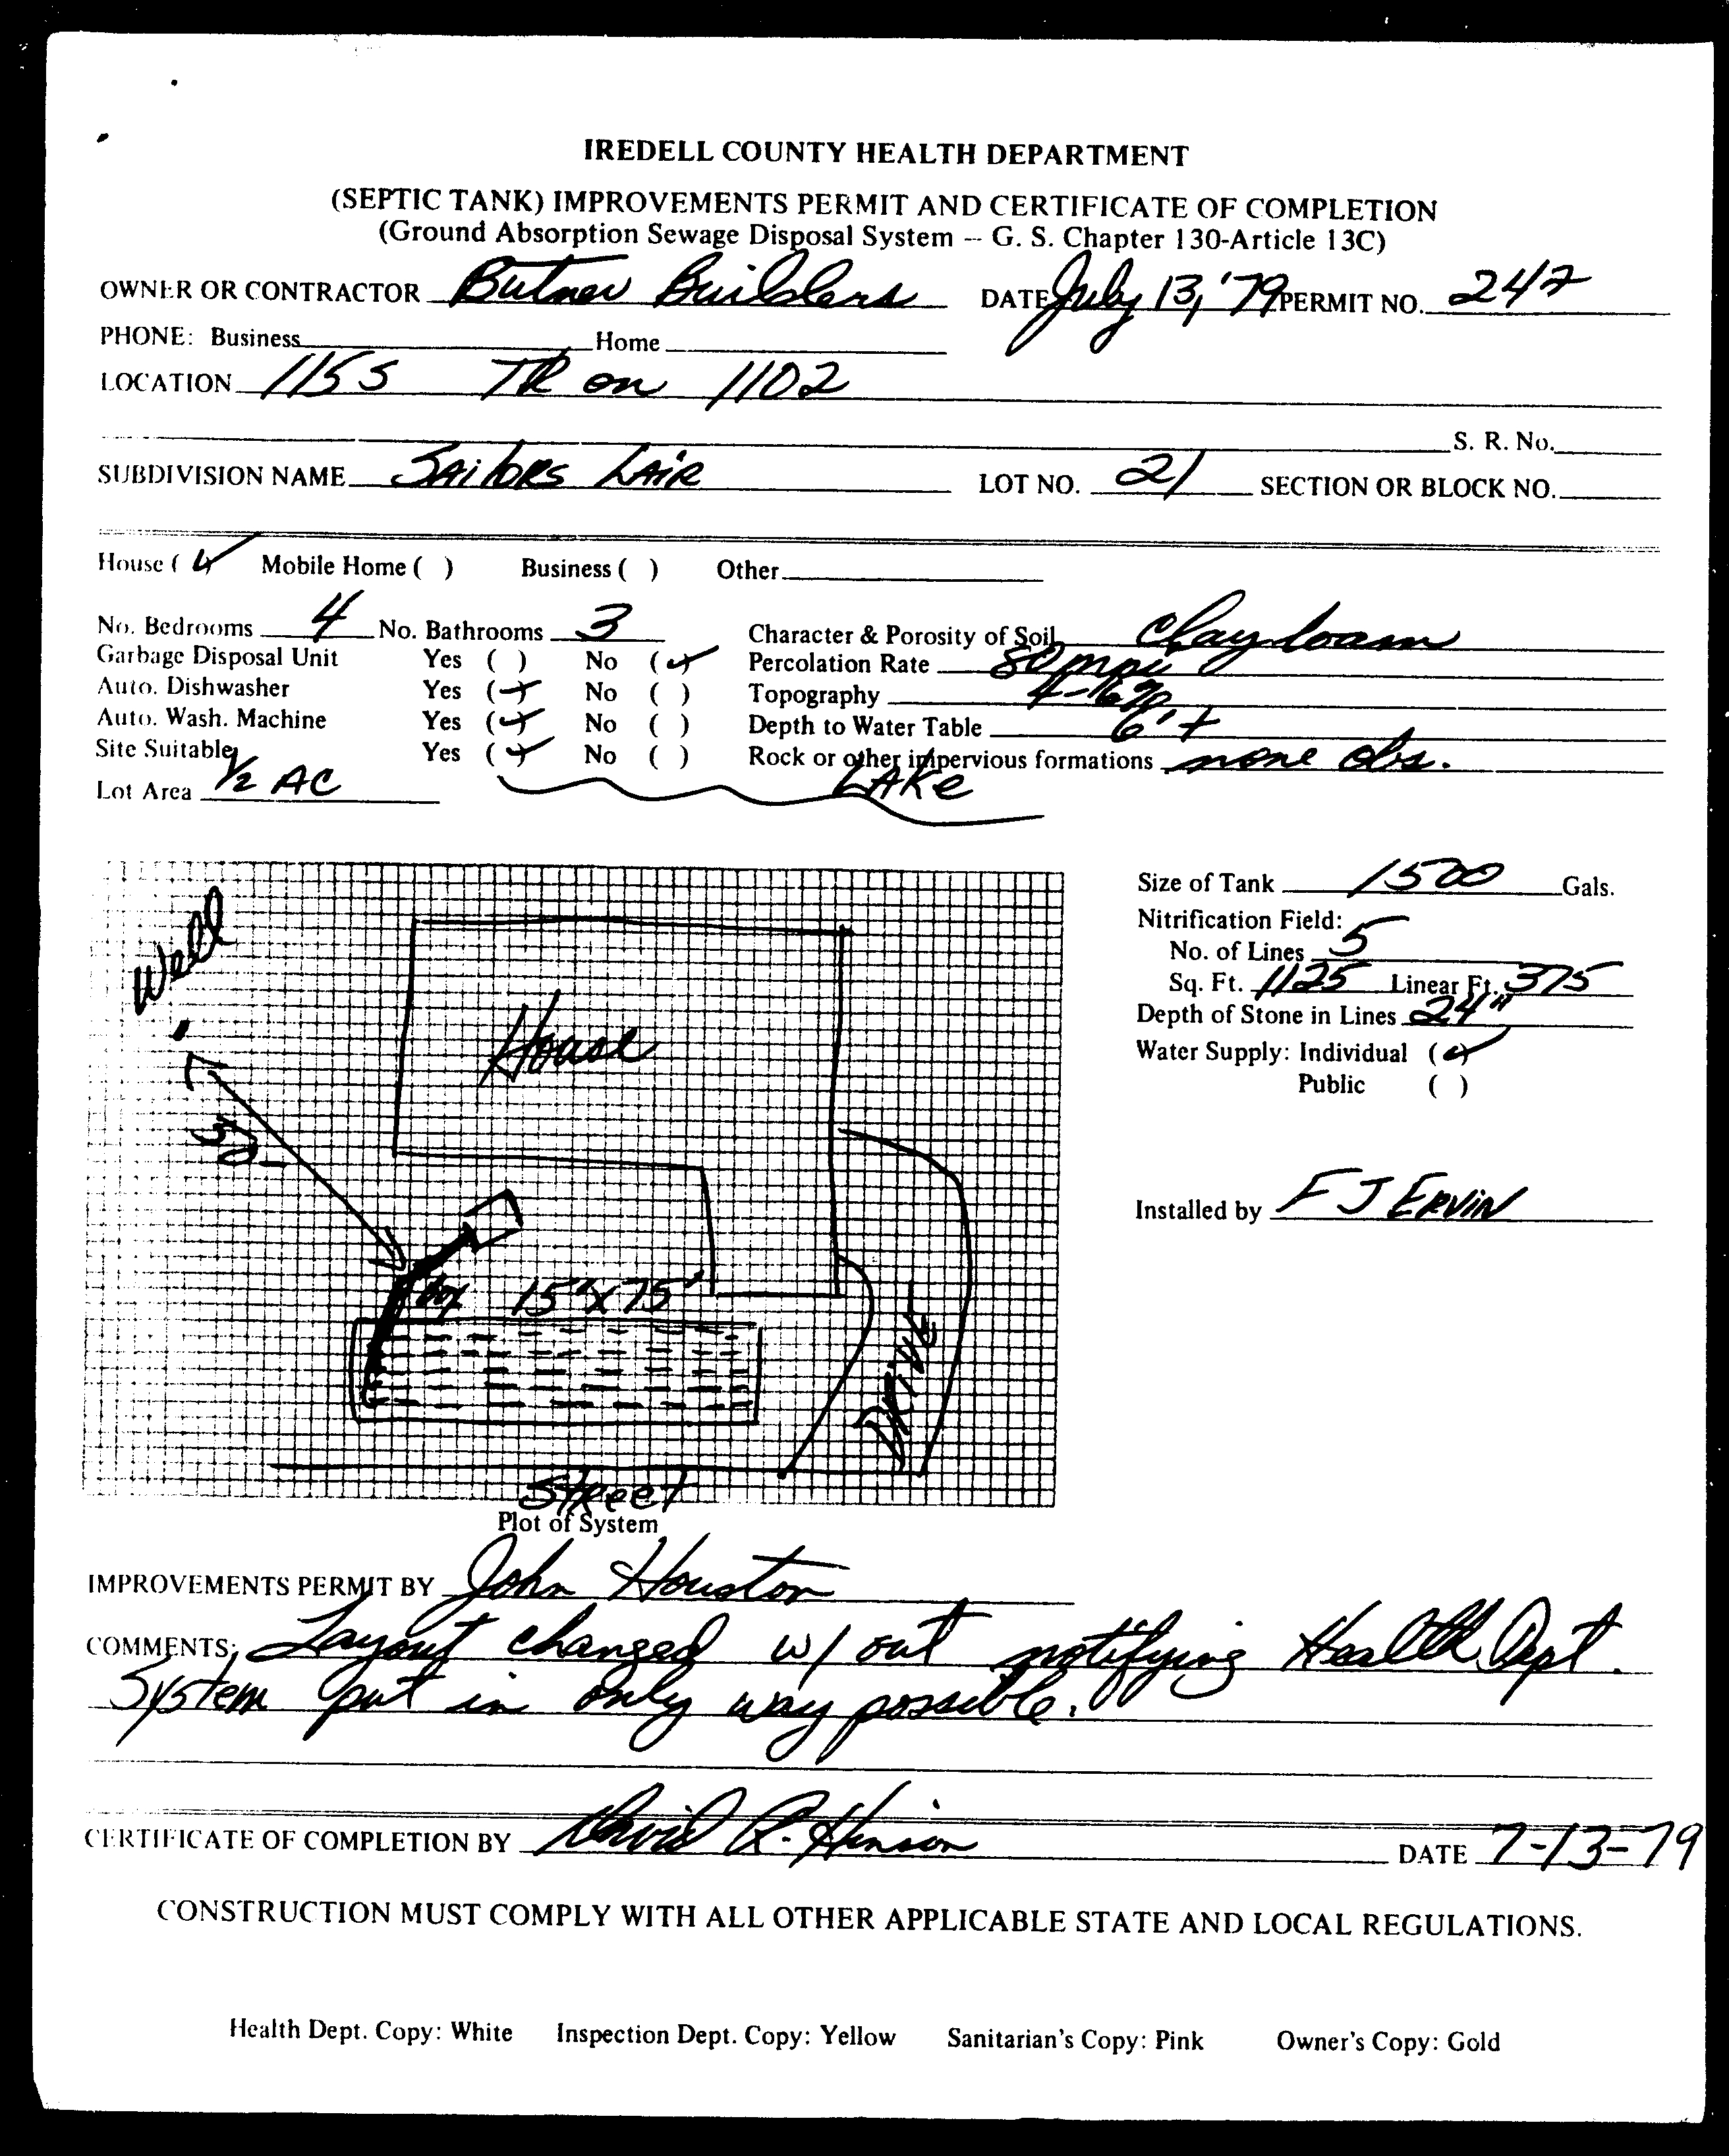 IREDELL COUNTY HEALTH DEPARTMENT
(SEPTIC TANK) IMPROVEMENTS PERMIT AND CERTIFICATE OF COMPLETION
(Ground Absorption Sewage Disposal System -- G. S. Chapter 130-Article 13C)
OWNER OR CONTRACTOR Butner Builders DATE July 13, '79 PERMIT NO. 247
PHONE: Business Home
LOCATION 115 S TR on 1102
S. R. No.
SUBDIVISION NAME SAilORS LAiR LOT NO. 21 SECTION OR BLOCK NO.
House ( ) Mobile Home ( ) Business ( ) Other
No. Bedrooms 4 No. Bathrooms 3 Character & Porosity of Soil Clay loam
Garbage Disposal Unit Yes ( ) No (✓) Percolation Rate 80 mpi
Auto. Dishwasher Yes (✓) No ( ) Topography 4-16%
Auto. Wash. Machine Yes (✓) No ( ) Depth to Water Table 6'+
Site Suitable Yes (✓) No ( ) Rock or other impervious formations none obs.
Lot Area 1/2 AC LAKe
Size of Tank 1500 Gals.
Nitrification Field:
No. of Lines 5
Sq. Ft. 1125 Linear Ft. 375
Depth of Stone in Lines 24"
Water Supply: Individual (✓)
Public ( )
Installed by F J ERViN
Well
House
box 15'x75'
DRiVe
StReeT
Plot of System
IMPROVEMENTS PERMIT BY John Houston
COMMENTS: Layout changed w/out notifying Health Dept.
System put in only way possible.
CERTIFICATE OF COMPLETION BY David R. Hinson DATE 7-13-79
CONSTRUCTION MUST COMPLY WITH ALL OTHER APPLICABLE STATE AND LOCAL REGULATIONS.
Health Dept. Copy: White Inspection Dept. Copy: Yellow Sanitarian's Copy: Pink Owner's Copy: Gold